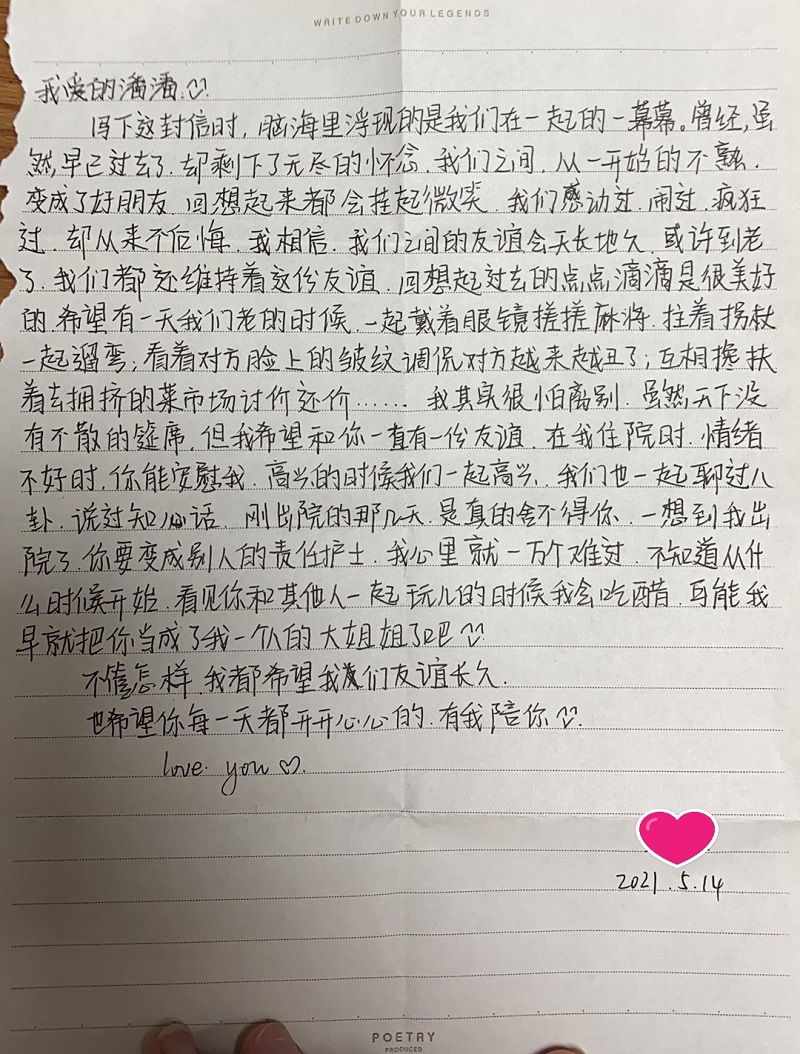 WRITE DOWN YOUR LEGENDS
我爱的潘潘♡
写下这封信时,脑海里浮现的是我们在一起的一幕幕。曾经,虽
然,早已过去了.却剩下了无尽的怀念.我们之间,从一开始的不熟.
变成了好朋友.回想起来都会挂起微笑.我们感动过.闹过.疯狂
过.却从来不后悔.我相信.我们之间的友谊会天长地久.或许到老
了.我们都还维持着这份友谊.回想起过去的点点滴滴是很美好
的.希望有一天我们老的时候.一起戴着眼镜搓搓麻将.拄着拐杖
一起遛弯;看着对方脸上的皱纹调侃对方越来越丑了;互相搀扶
着去拥挤的菜市场讨价还价…… 我其实很怕离别.虽然天下没
有不散的筵席.但我希望和你一直有一份友谊.在我住院时.情绪
不好时.你能安慰我.高兴的时候我们一起高兴.我们也一起聊过八
卦.说过知心话.刚出院的那几天.是真的舍不得你.一想到我出
院了.你要变成别人的责任护士.我心里就一万个难过.不知道从什
么时候开始.看见你和其他人一起玩儿的时候我会吃醋.可能我
早就把你当成了我一个人的大姐姐了吧
不管怎样.我都希望我们友谊长久.
也希望你每一天都开开心心的.有我陪你
love you ♡.
2021.5.14
POETRY
PRODUCED